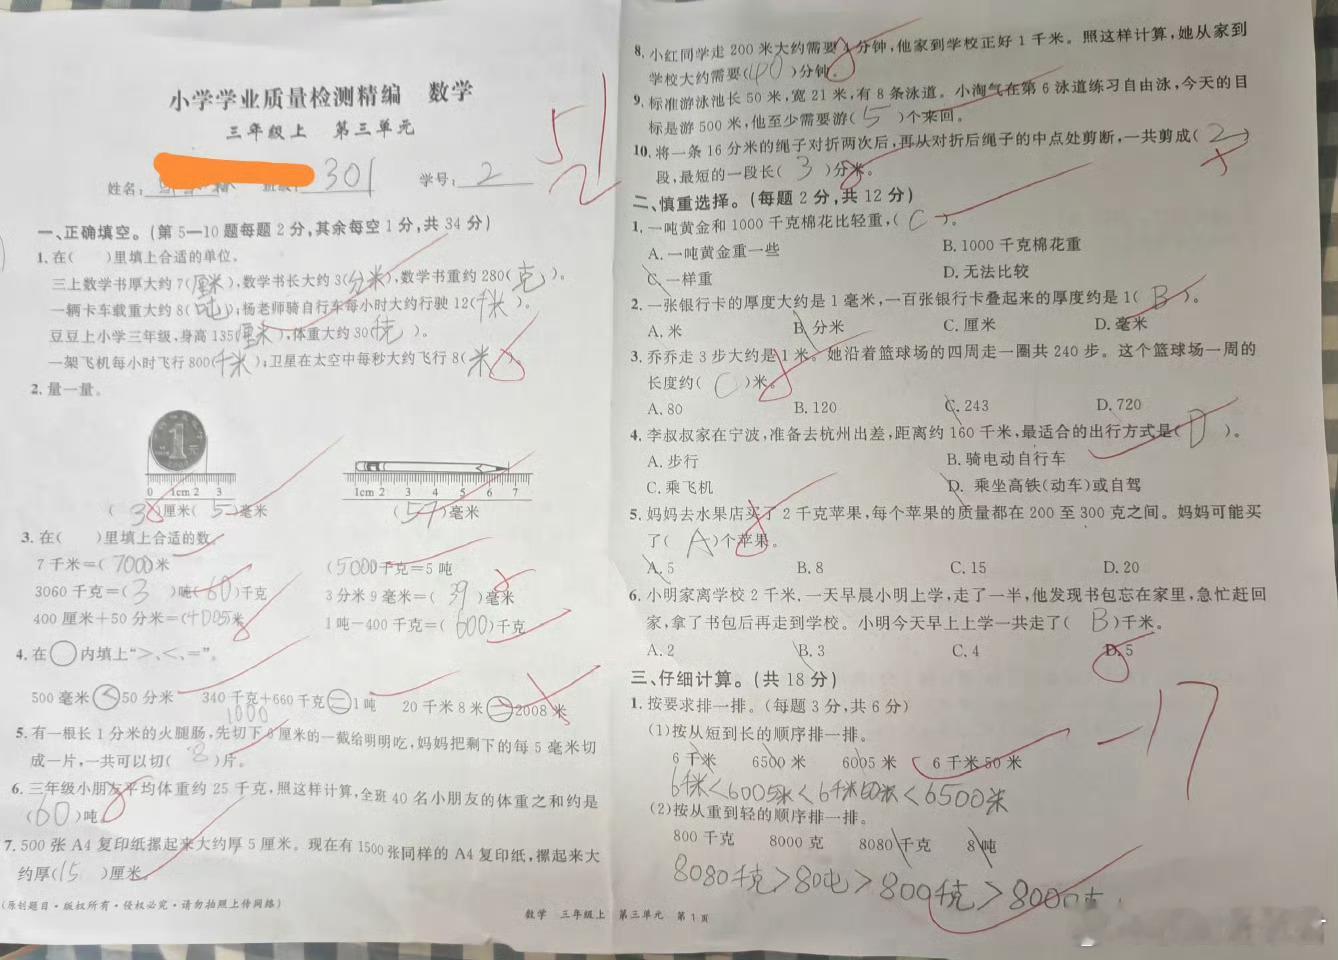 小学学业质量检测精编 数学
三年级上 第三单元
姓名: 301 学号: 2
512
一、正确填空。(第 5—10 题每题 2 分,其余每空 1 分,共 34 分)
1. 在( )里填上合适的单位。
三上数学书厚大约 7(厘米),数学书长大约 3(分米),数学书重约 280(克)。
一辆卡车载重大约 8(吨);杨老师骑自行车每小时大约行驶 12(千米)。
豆豆上小学三年级,身高 135(厘米),体重大约 30(千克)。
一架飞机每小时飞行 800(千米);卫星在太空中每秒大约飞行 8(米)。
2. 量一量。
0 1cm 2 3
1cm 2 3 4 5 6 7
(3)厘米(5)毫米
(54)毫米
3. 在( )里填上合适的数。
7 千米=(7000)米
(5000)千克=5 吨
3060 千克=(3)吨(60)千克
3 分米 9 毫米=(39)毫米
400 厘米+50 分米=(4005)米
1 吨-400 千克=(600)千克
4. 在○内填上“>、<、=”。
500 毫米<50 分米 340 千克+660 千克=1 吨 20 千米 8 米=2008 米
1000
5. 有一根长 1 分米的火腿肠,先切下 6 厘米的一截给明明吃,妈妈把剩下的每 5 毫米切
成一片,一共可以切(8)片。
6. 三年级小朋友平均体重约 25 千克,照这样计算,全班 40 名小朋友的体重之和约是
(60)吨。
7. 500 张 A4 复印纸摞起来大约厚 5 厘米。现在有 1500 张同样的 A4 复印纸,摞起来大
约厚(15)厘米。
(原创题目·版权所有·侵权必究·请勿拍照上传网络)
8. 小红同学走 200 米大约需要 4 分钟,他家到学校正好 1 千米。照这样计算,她从家到
学校大约需要(40)分钟。
9. 标准游泳池长 50 米,宽 21 米,有 8 条泳道。小淘气在第 6 泳道练习自由泳,今天的目
标是游 500 米,他至少需要游(5)个来回。
10. 将一条 16 分米的绳子对折两次后,再从对折后绳子的中点处剪断,一共剪成(2)
段,最短的一段长(3)分米。
二、慎重选择。(每题 2 分,共 12 分)
1. 一吨黄金和 1000 千克棉花比轻重,(C)。
A. 一吨黄金重一些 B. 1000 千克棉花重
C. 一样重 D. 无法比较
2. 一张银行卡的厚度大约是 1 毫米,一百张银行卡叠起来的厚度约是 1(B)。
A. 米 B. 分米 C. 厘米 D. 毫米
3. 乔乔走 3 步大约是 1 米。她沿着篮球场的四周走一圈共 240 步。这个篮球场一周的
长度约(C)米。
A. 80 B. 120 C. 243 D. 720
4. 李叔叔家在宁波,准备去杭州出差,距离约 160 千米,最适合的出行方式是(D)。
A. 步行 B. 骑电动自行车
C. 乘飞机 D. 乘坐高铁(动车)或自驾
5. 妈妈去水果店买了 2 千克苹果,每个苹果的质量都在 200 至 300 克之间。妈妈可能买
了(A)个苹果。
A. 5 B. 8 C. 15 D. 20
6. 小明家离学校 2 千米,一天早晨小明上学,走了一半,他发现书包忘在家里,急忙赶回
家,拿了书包后再走到学校。小明今天早上上学一共走了(B)千米。
A. 2 B. 3 C. 4 D. 5
三、仔细计算。(共 18 分)
-17
1. 按要求排一排。(每题 3 分,共 6 分)
(1)按从短到长的顺序排一排。
6 千米 6500 米 6005 米 6 千米 50 米
6千米<6005米<6千米50米<6500米
(2)按从重到轻的顺序排一排。
800 千克 8000 克 8080 千克 8 吨
8080千克>80吨>800千克>8000克
数学 三年级上 第三单元 第 1 页